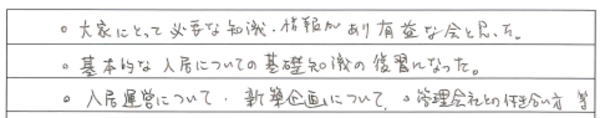 。大家にとって必要な知識・情報があり有益な会と思った。
。基本的な入居についての基礎知識の復習になった。
。入居運営について・新築企画について 。管理会社との付き合い方 等